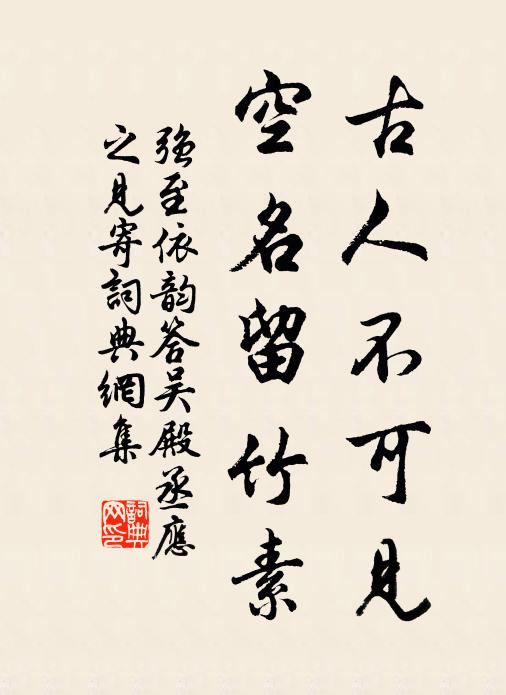 古人不可見
空名留竹素
強至依韵答吴殿丞應
之見寄詞典網集
詞典网印